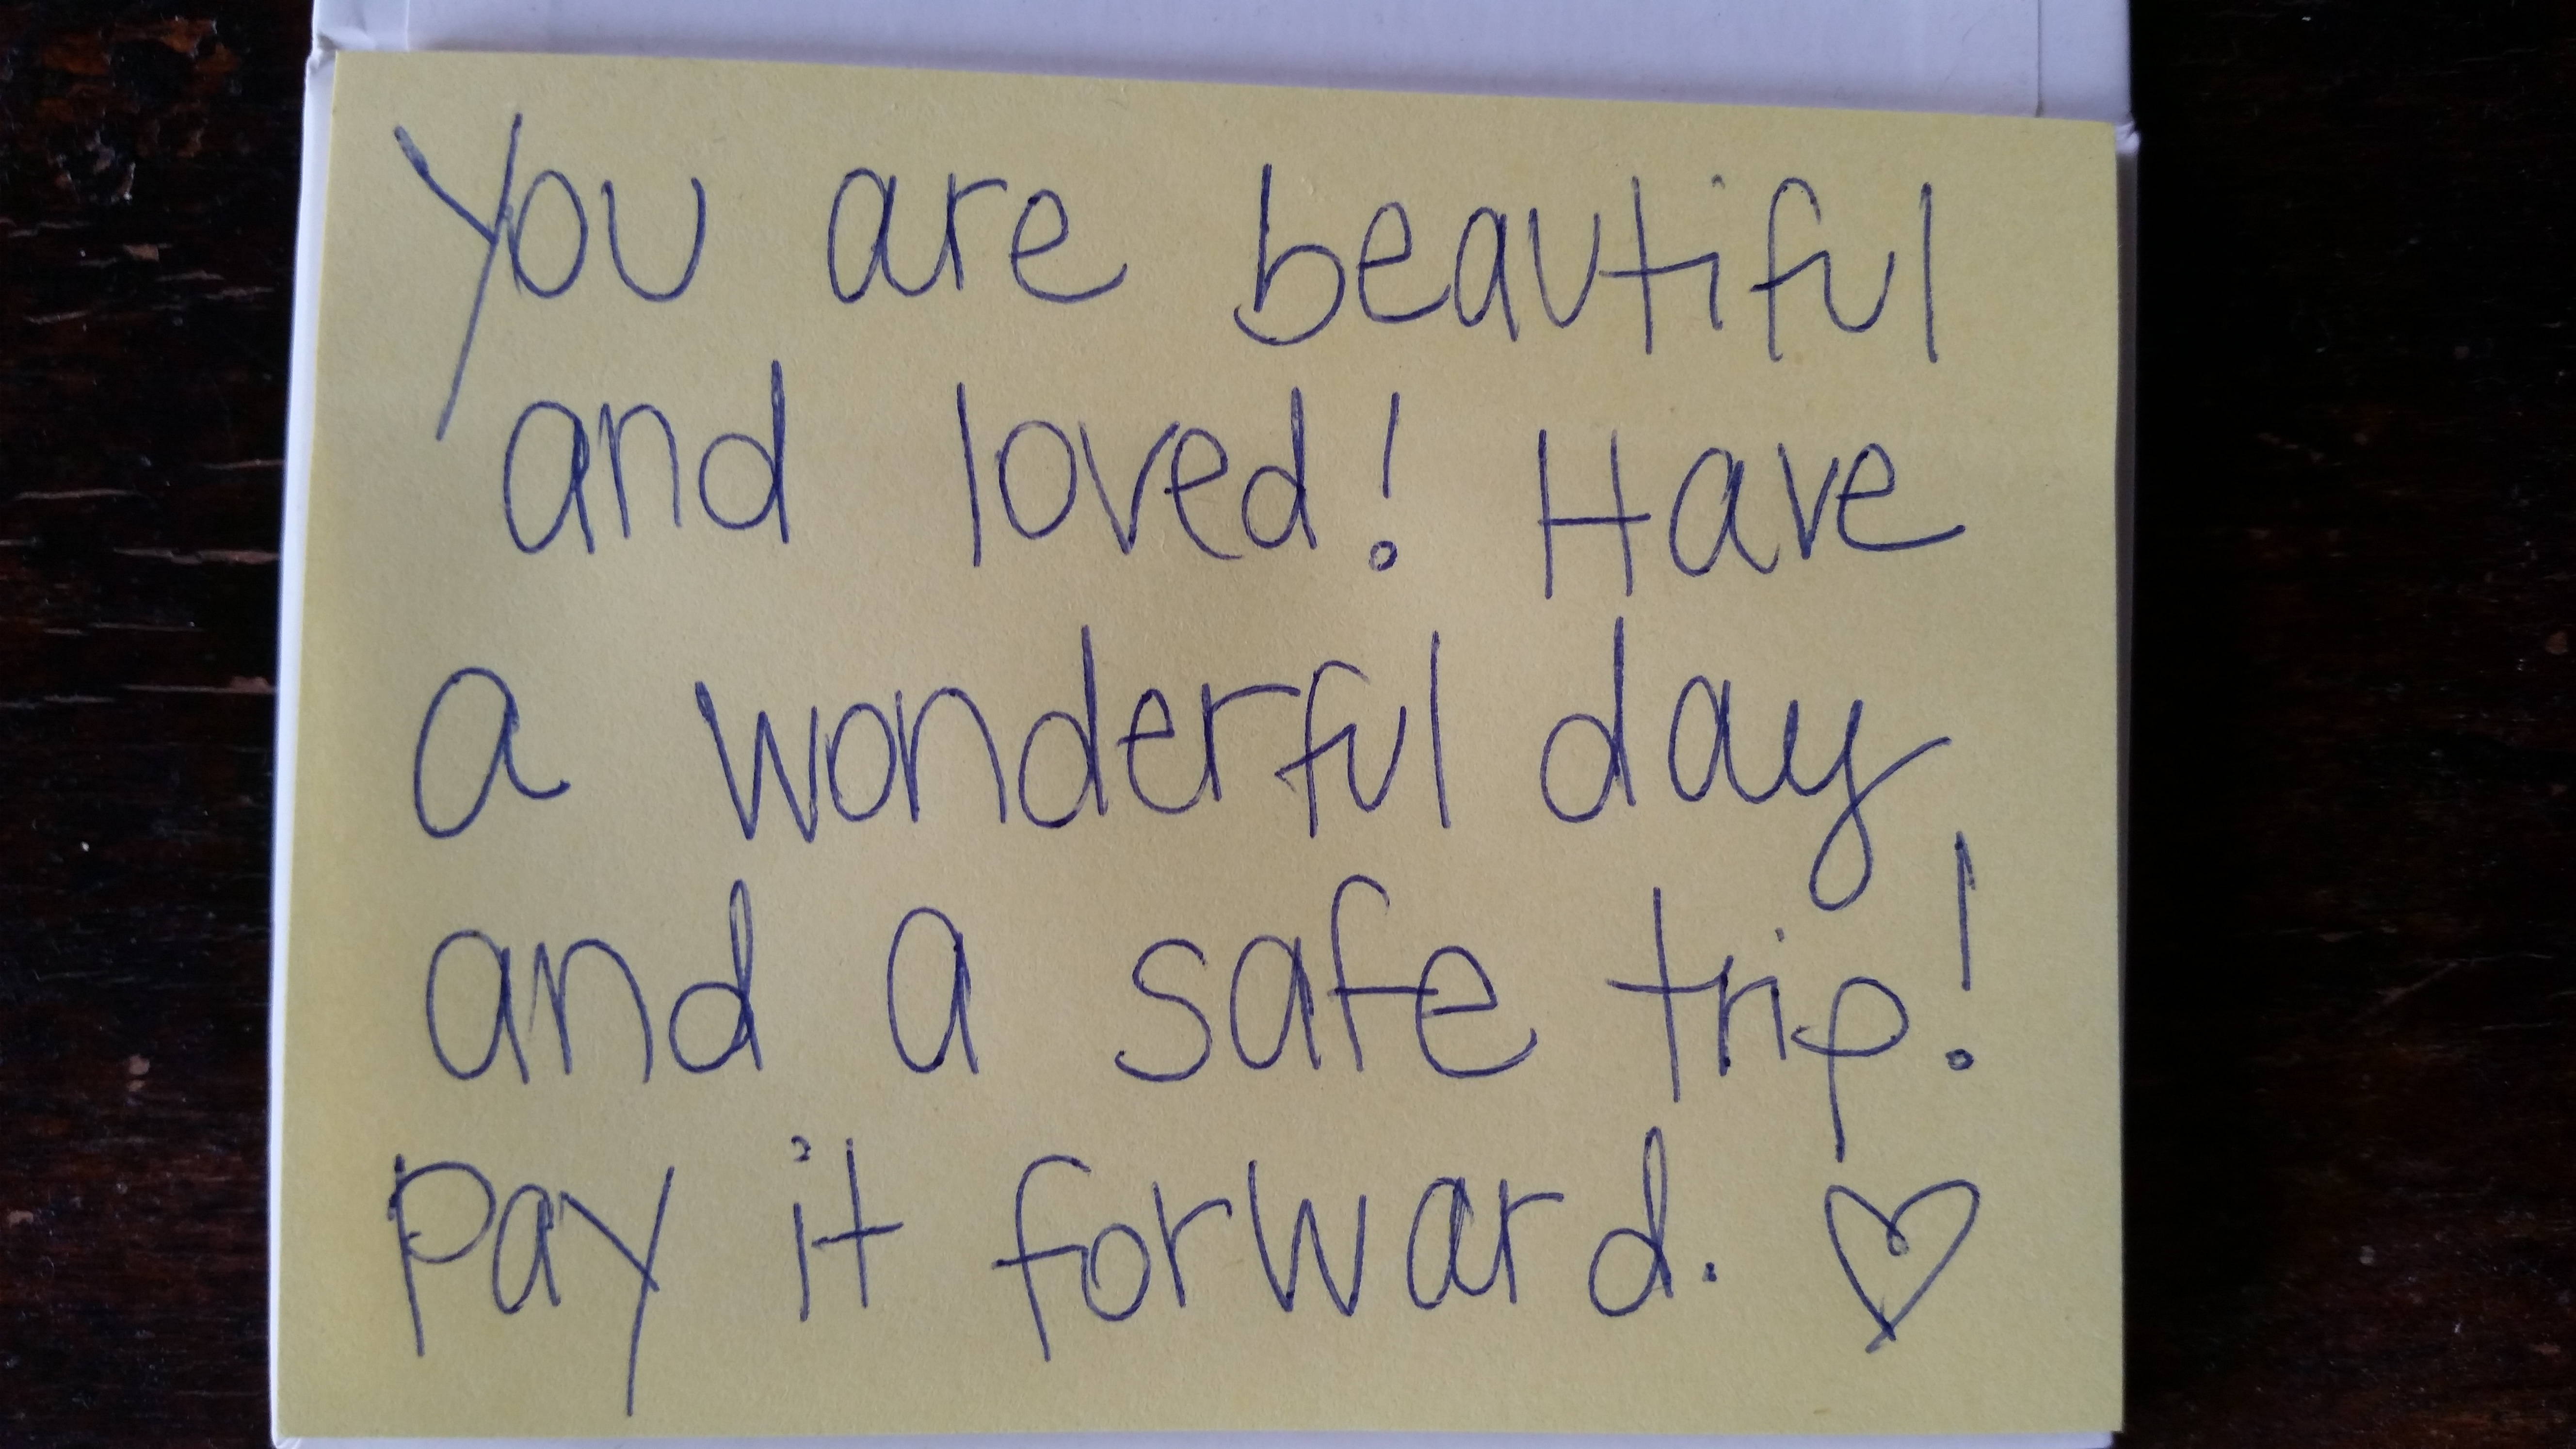 You are beautiful
and loved! Have
a wonderful day
and a safe trip!
Pay it forward. ♡